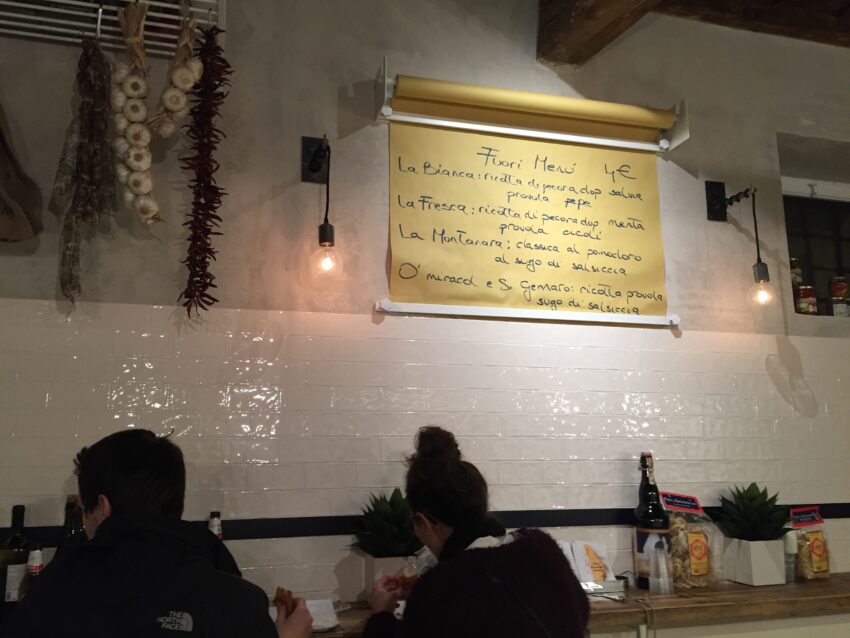 Fuori Menú 4€
La Bianca: ricotta di pecora dop salvia
provola pepe
La Fresca: ricotta di pecora dop menta
provola cicoli
La Montanara: classica al pomodoro
al sugo di salsiccia
O' miracol e S. Gennaro: ricotta provola
sugo di salsiccia
THE
NORTH
FACE